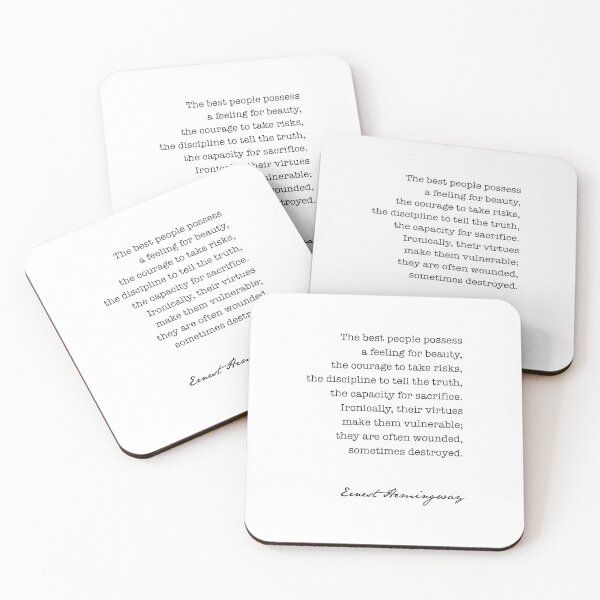 The best people possess
a feeling for beauty,
the courage to take risks,
the discipline to tell the truth,
the capacity for sacrifice.
Ironically, their virtues
vulnerable;
wounded,
destroyed.
The best people possess
a feeling for beauty,
the courage to take risks,
the discipline to tell the truth,
the capacity for sacrifice.
Ironically, their virtues
make them vulnerable;
they are often wounded,
sometimes destroyed.
The best people possess
a feeling for beauty,
the courage to take risks,
the discipline to tell the truth,
the capacity for sacrifice.
Ironically, their virtues
make them vulnerable;
they are often wounded,
sometimes destro
Ernest Hem
The best people possess
a feeling for beauty,
the courage to take risks,
the discipline to tell the truth,
the capacity for sacrifice.
Ironically, their virtues
make them vulnerable;
they are often wounded,
sometimes destroyed.
Ernest Hemingway